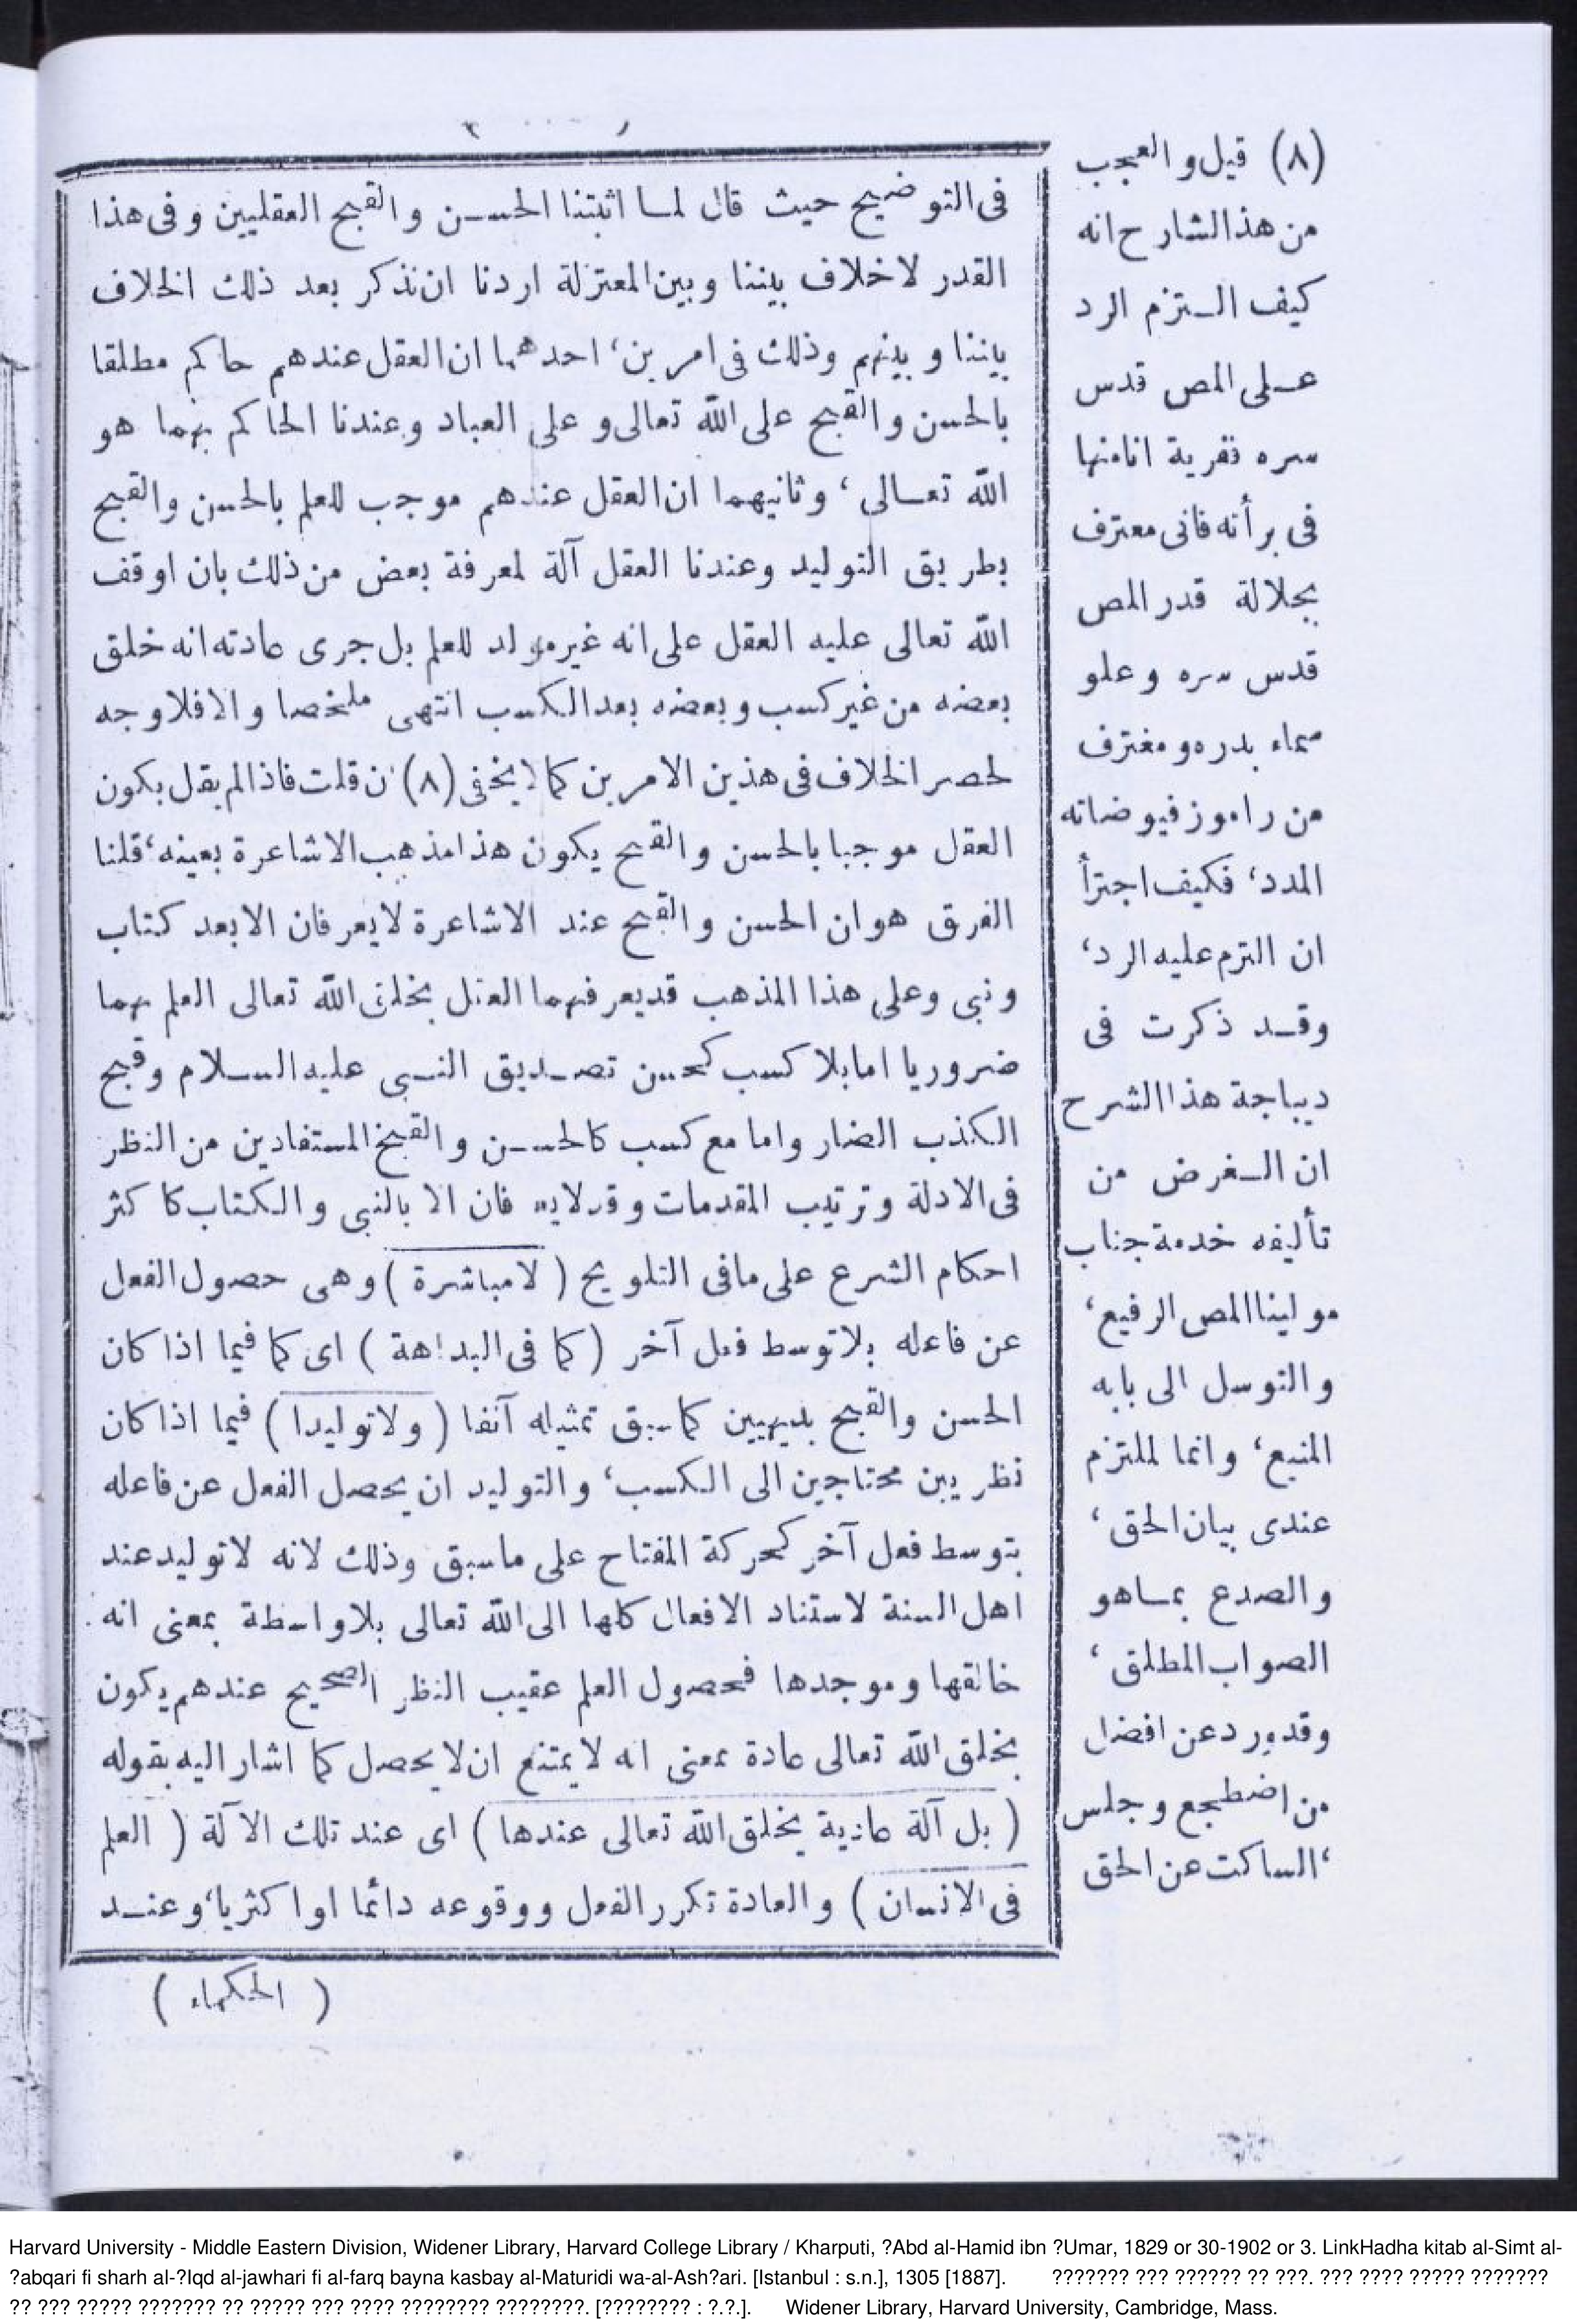 فى التوضيح حيث قال لما اثبتنا الحسن والقبح العقليين وفى هذا
القدر لاخلاف بيننا وبين المعتزلة اردنا ان نذكر بعد ذلك الخلاف
بيننا وبينهم وذلك فى امرين، احدهما ان العقل عندهم حاكم مطلقا
بالحسن والقبح على الله تعالى وعلى العباد وعندنا الحاكم بهما هو
الله تعالى، وثانيهما ان العقل عندهم موجب للعلم بالحسن والقبح
بطريق التوليد وعندنا العقل آلة لمعرفة بعض من ذلك بان اوقف
الله تعالى عليه العقل على انه غير مولد للعلم بل جرى عادته انه خلق
بعضه من غير كسب وبعضه بعد الكسب انتهى ملخصا والافلا وجه
لحصر الخلاف فى هذين الامرين كما لا يخفى (٨) ن قلت فاذا لم يقل بكون
العقل موجبا بالحسن والقبح يكون هذا مذهب الاشاعرة بعينه، قلنا
الفرق هو ان الحسن والقبح عند الاشاعرة لايعرفان الابعد كتاب
ونبى وعلى هذا المذهب قديعرفهما العقل بخلق الله تعالى العلم بهما
ضروريا امابلا كسب كحسن تصديق النبى عليه السلام وقبح
الكذب الضار واما مع كسب كالحسن والقبح المستفادين من النظر
فى الادلة وترتيب المقدمات وقد لايعرفان الا بالنبى والكتاب كاكثر
احكام الشرع على مافى التلويح (لامباشرة) وهى حصول الفعل
عن فاعله بلاتوسط فعل آخر (كما فى البداهة) اى كما فيما اذا كان
الحسن والقبح بديهيين كما سبق تمثيله آنفا (ولاتوليدا) فيما اذا كان
نظريين محتاجين الى الكسب، والتوليد ان يحصل الفعل عن فاعله
بتوسط فعل آخر كحركة المفتاح على ماسبق وذلك لانه لاتوليد عند
اهل السنة لاستناد الافعال كلها الى الله تعالى بلاواسطة بمعنى انه
خالقها وموجدها فحصول العلم عقيب النظر الصحيح عندهم يكون
بخلق الله تعالى عادة بمعنى انه لايمتنع ان لايحصل كما اشار اليه بقوله
(بل آلة عادية يخلق الله تعالى عندها) اى عند تلك الآلة (العلم
فى الانسان) والعادة تكرر الفعل ووقوعه دائما او اكثريا، وعند
(الحكماء)
(٨) قيل والعجب
من هذ الشارح انه
كيف التزم الرد
على المص قدس
سره نفرية انامنها
فى برأنه فانى معترف
بجلالة قدر المص
قدس سره وعلو
سماء بدره ومغترف
من راموز فيوضاته
المدد، فكيف اجترأ
ان التزم عليه الرد،
وقد ذكرت فى
ديباجة هذا الشرح
ان الغرض من
تأليفه خدمة جناب
مولينا المص الرفيع،
والتوسل الى بابه
المنيع، وانما الملتزم
عندى بيان الحق،
والصدع بماهو
الصواب المطلق،
وقد ورد عن افضل
من اضطجع وجلس
،الساكت عن الحق
Harvard University - Middle Eastern Division, Widener Library, Harvard College Library / Kharputi, ?Abd al-Hamid ibn ?Umar, 1829 or 30-1902 or 3. LinkHadha kitab al-Simt al-
?abqari fi sharh al-?Iqd al-jawhari fi al-farq bayna kasbay al-Maturidi wa-al-Ash?ari. [Istanbul : s.n.], 1305 [1887]. ??????? ??? ?????? ?? ???. ??? ???? ????? ???????
?? ??? ????? ??????? ?? ????? ??? ???? ???????? ????????. [???????? : ?.?.]. Widener Library, Harvard University, Cambridge, Mass.